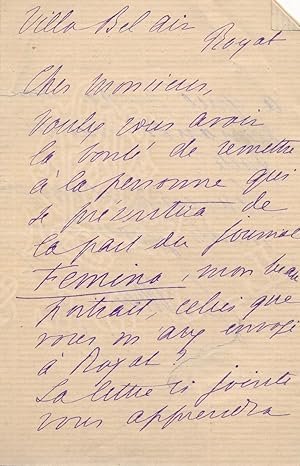 Villa Bel air
Royat
Cher monsieur,
Voulez vous avoir
la bonté de remettre
à la personne qui
se présentera de
la part du journal
Femina, mon beau
portrait, celui que
vous m'avez envoyé
à Royat?
La lettre ci jointe
vous apprendra